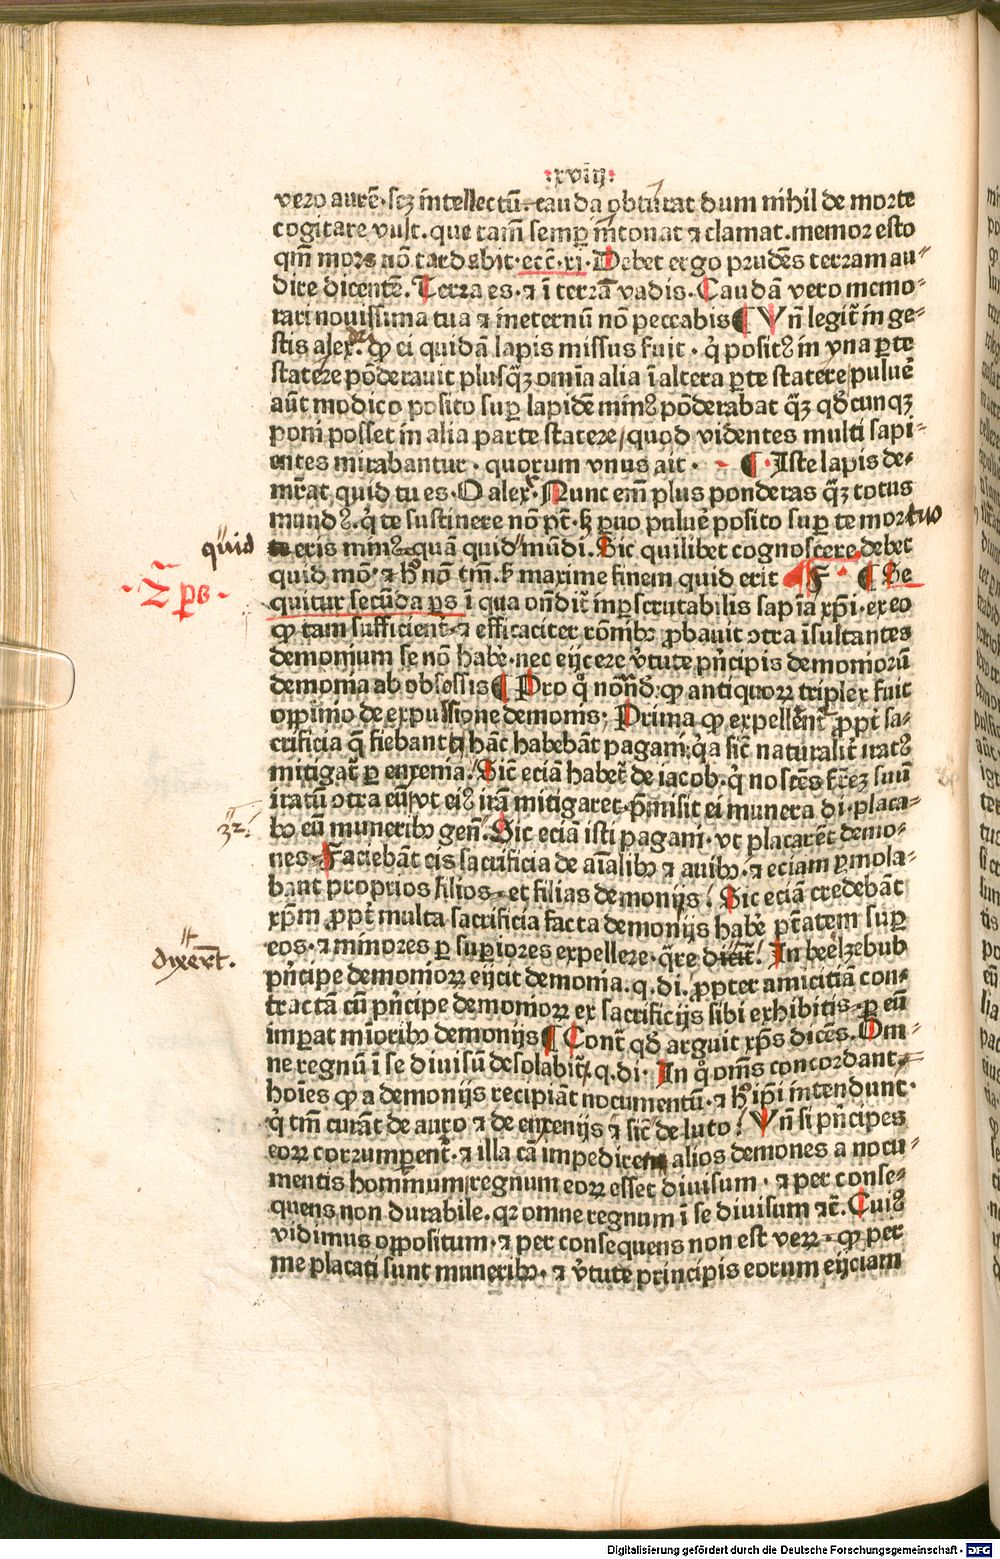 :xviij:
vero aurē·scz intellectū.cauda obturat dum nihil de morte
cogitare vult.que tamē semꝑ intonat ⁊ clamat.memor esto
qm̄ mors nō tardabit·ecc̄·xj·Debet ergo prudēs terram au⸗
dire dicentē.Terra es·⁊ ī terrā vadis.Caudā vero memo⸗
rari nouissima tua ⁊ ineternū nō peccabis¶Vn̄ legit̄ in ge⸗
stis alex.ꝙ ei quidā lapis missus fuit·q̇ posit⁹ in vna ꝑte
statere pōderauit plusq̄ꝫ omīa alia ī altera ꝑte statere/puluē
aūt modico posito suꝑ lapidē min⁹ pōderabat q̄ꝫ qd̄cunqꝫ
poni posset in alia parte statere/quod videntes multi sapi⸗
entes mirabantur·quorum vnus ait·¶·Iste lapis de⸗
mr̄at quid tu es·O alex.Nunc em̄ plus ponderas q̄ꝫ totus
mund⁹.q̇ te sustinere nō pt̄·sꝫ ꝑuo puluē posito suꝑ te mortuo
quid
eris min⁹ quā quid mūdi.Sic quilibet cognoscere debet
quid mō·⁊ hͦ nō tm̄.sꝫ maxime finem quid erit F·¶Se
2ͣ ꝑs
quitur secūda ꝑs ī qua on̄dit̄ inꝑscrutabilis sapīa xp̄i·ex eo
ꝙ tam sufficient̄·⁊ efficaciter rōībꝫ ꝓbauit ɔtra īsultantes
demonium se nō habē·nec eijcere v̄tute pn̄cipis demoniorū
demonia ab obsessis¶Pro qͦ nōnd̄:ꝙ antiquoꝝ triplex fuit
opp̄inio de expulsione demonis;Prima ꝙ expellent̄ ꝓpt̄ sa⸗
crificia q̄ fiebant⁊ hāc habebāt pagani:q̇a sic̄ naturalit̄ irat⁹
mitigat̄ ꝑ enxenia.Sic̄ eciā habet̄ de iacob·q̇ noscēs fr̄eꝫ suū
iratū ɔtra eū/vt ei⁹ irā mitigaret·p̄misit ei munera di·placa⸗
32·
bo eū muneribꝫ gen̄.Sic eciā isti pagani·vt placarēt demo⸗
nes·Faciebāt eis sacrificia de aīalibꝫ ⁊ auibꝫ·⁊ eciam ymola⸗
bant proprios filios·et filias demonijs!Sic eciā credebāt
xp̄m ꝓpt̄ multa sacrificia facta demonijs habē ptātem suꝑ
eos·⁊ minores ꝑ suꝑiores expellere·q̄re dicūt!In beelzebub
dixerūt.
pn̄cipe demonioꝝ eijcit demonia.q.di.ꝓpter amicitiā con⸗
tractā cū pn̄cipe demonioꝝ ex sacrificijs sibi exhibitis·ꝑ eū
imꝑat mīoribꝫ demonijs¶Cont̄ qd̄ arguit xp̄s dicēs.Om⸗
ne regnū ī se diuisū desolabit̄.q.di·In qͦ om̄s concordant·
hoīes ꝙ a demonijs recipiāt nocumentū·⁊ hͦ ip̄i intendunt·
q̇ tm̄ curāt de auro ⁊ de enxenijs ⁊ sic̄ de luto!Vn̄ si pn̄cipes
eoꝝ corrumꝑent̄·⁊ illa cā impedirent alios demones a nocu⸗
mentis hominum/regnum eoꝝ esset diuisum·⁊ per conse⸗
quens non durabile.qꝛ omne regnum ī se diuisum ⁊c̄.Cui⁹
vidimus oppositum·⁊ per consequens non est veꝝ·ꝙ per
me placati sunt muneribꝫ·⁊ v̄tute principis eorum eijciam
Digitalisierung gefördert durch die Deutsche Forschungsgemeinschaft - DFG